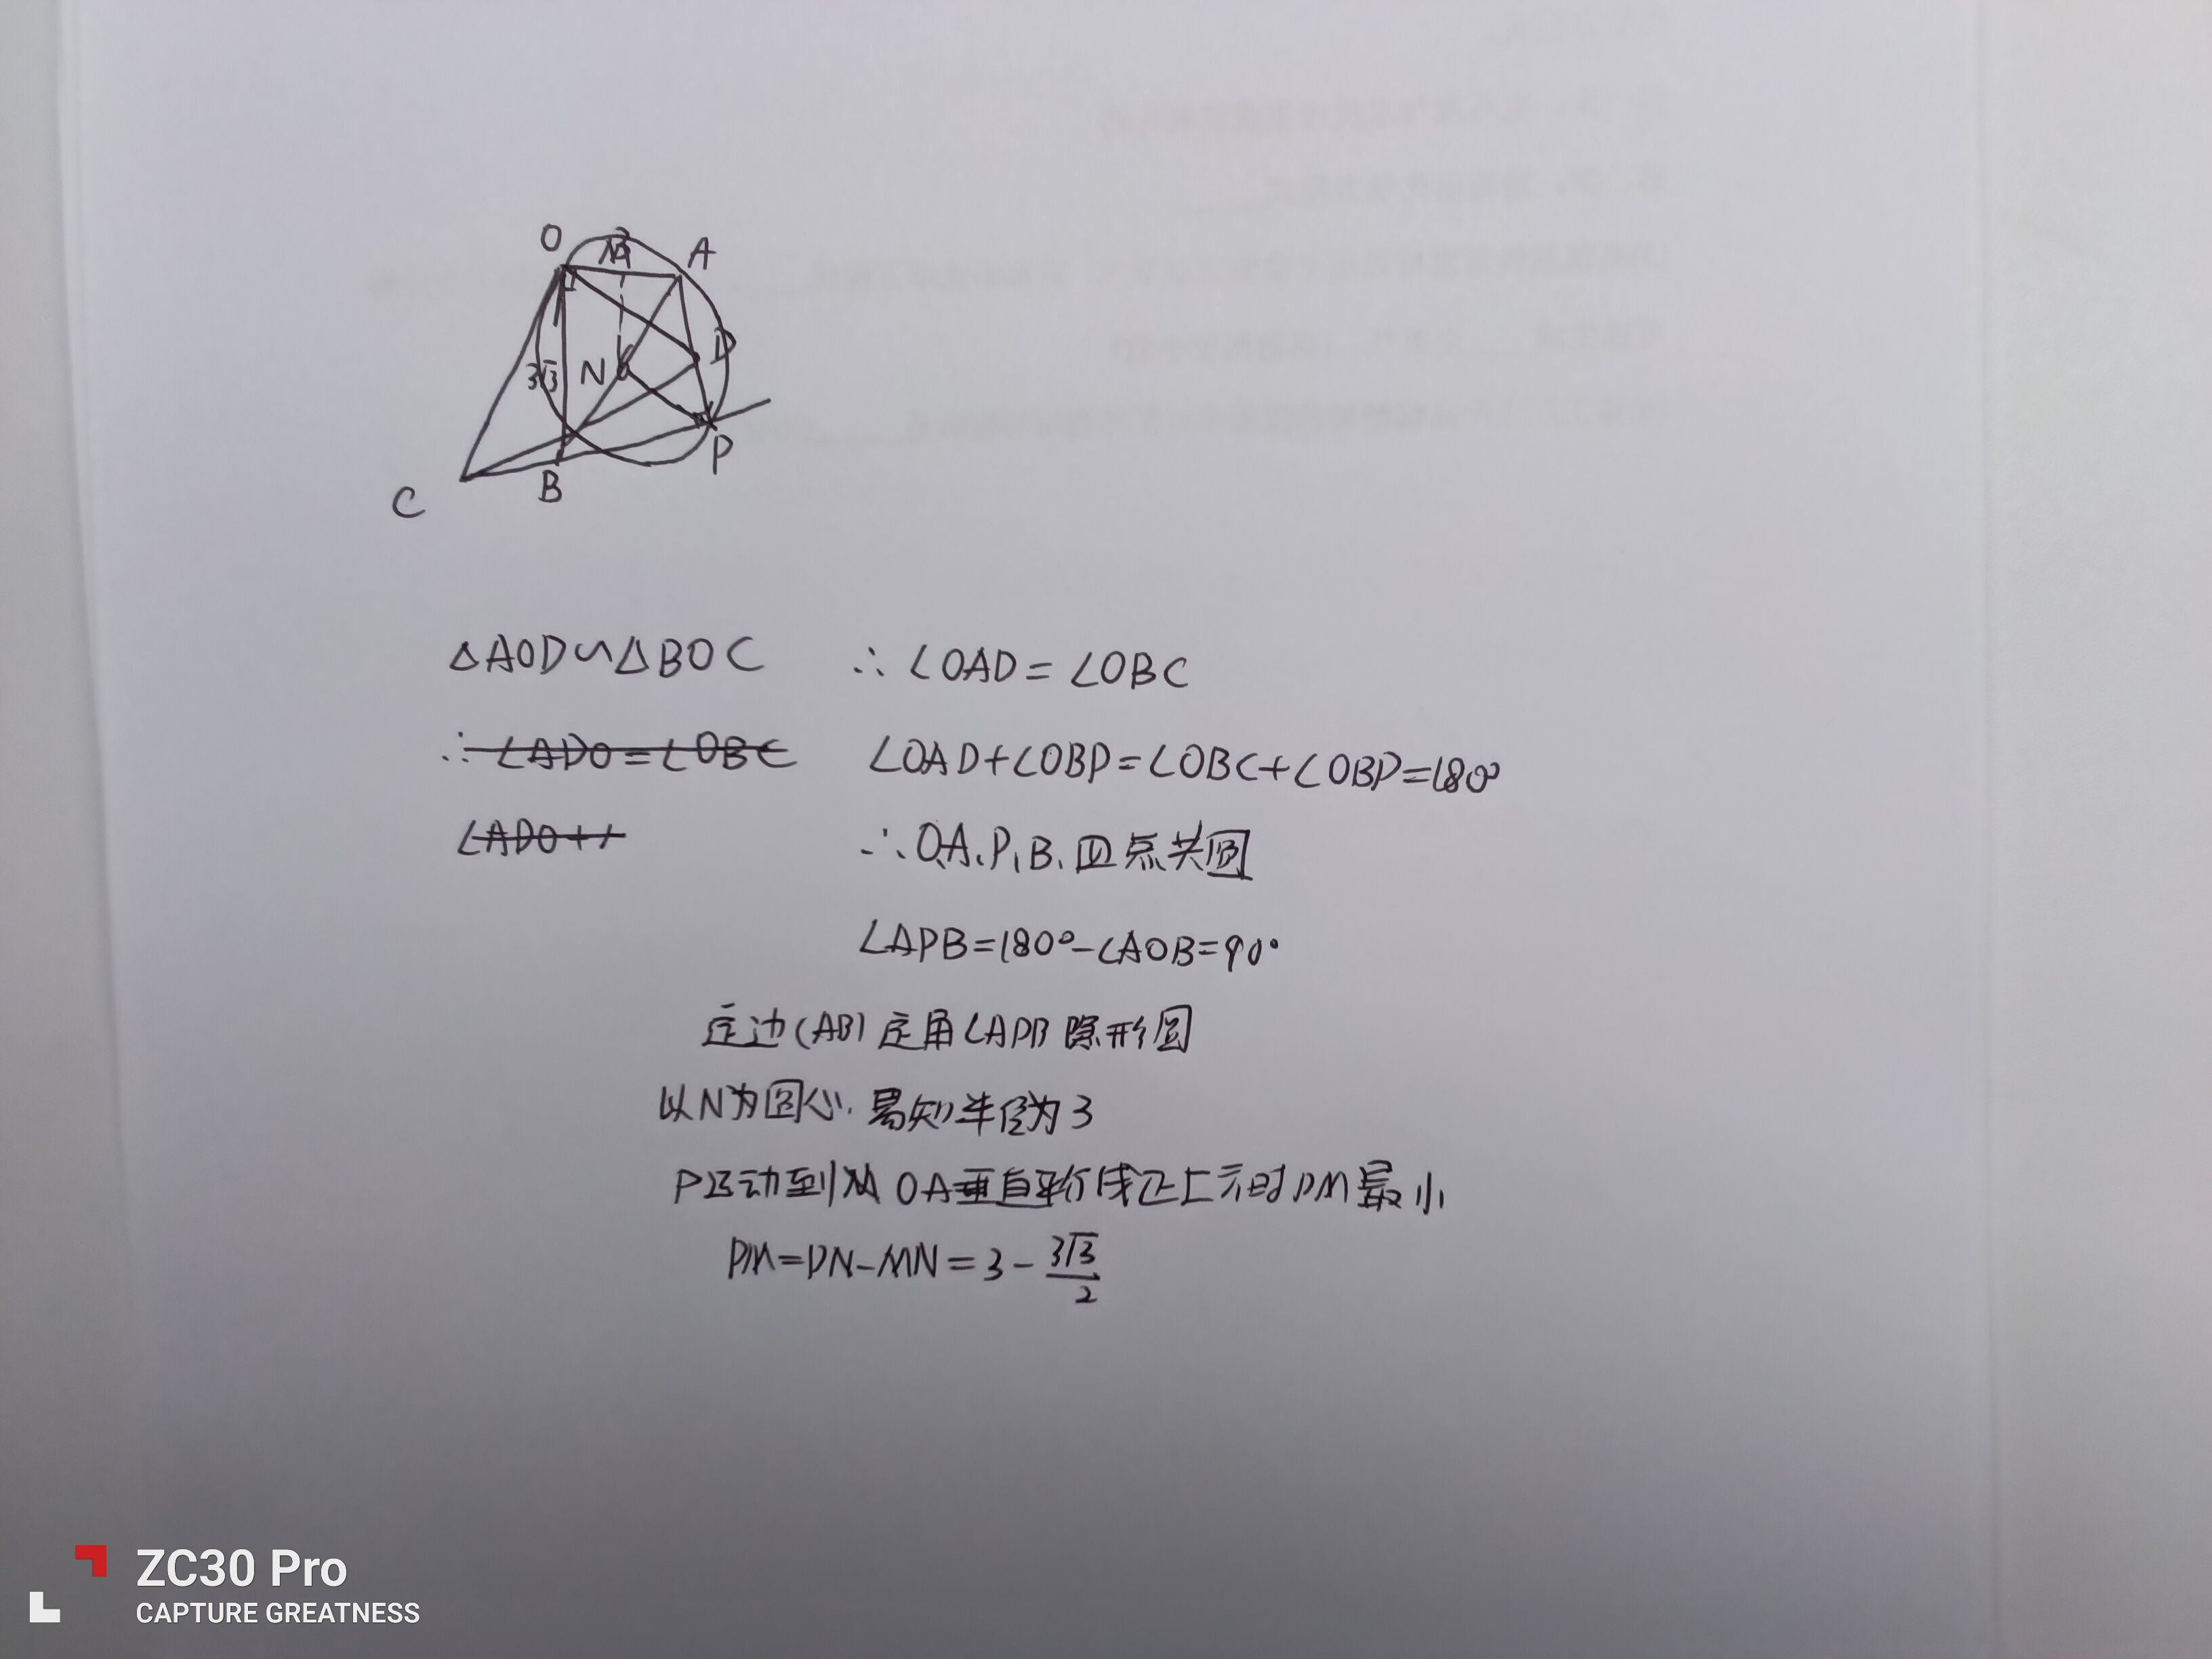 O
M
A
3√3
N
D
P
C
B
△AOD∽△BOC ∴∠OAD=∠OBC
∴∠ADO=∠OBC ∠OAD+∠OBP=∠OBC+∠OBP=180°
∠ADO+∠ ∴O、A、P、B、四点共圆
∠APB=180°-∠AOB=90°
定边(AB)定角∠APB隐形圆
以N为圆心.易知半径为3
P运动到 OA垂直平分线正上方时PM最小
PM=PN-MN=3-3√3/2
ZC30 Pro
CAPTURE GREATNESS